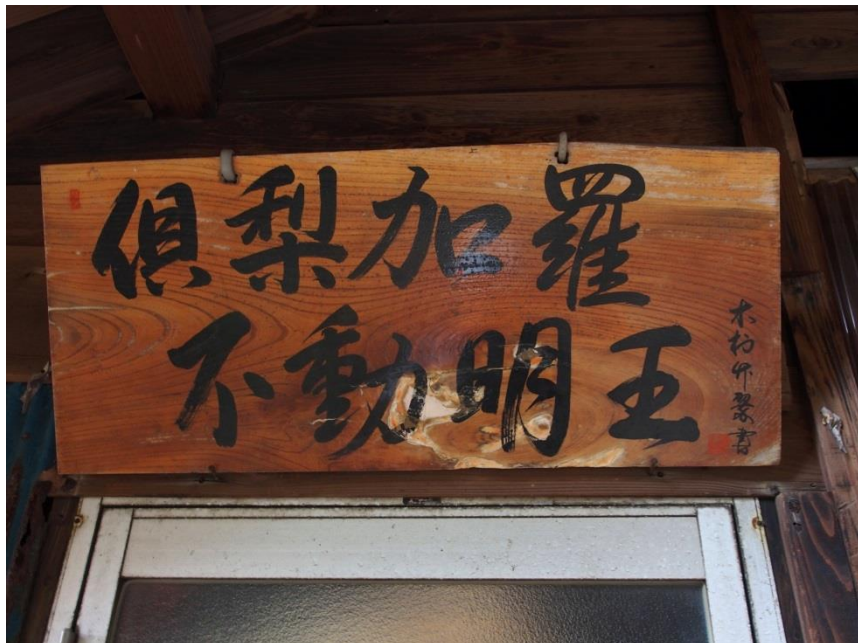 俱梨加羅
不動明王
木村竹翠書